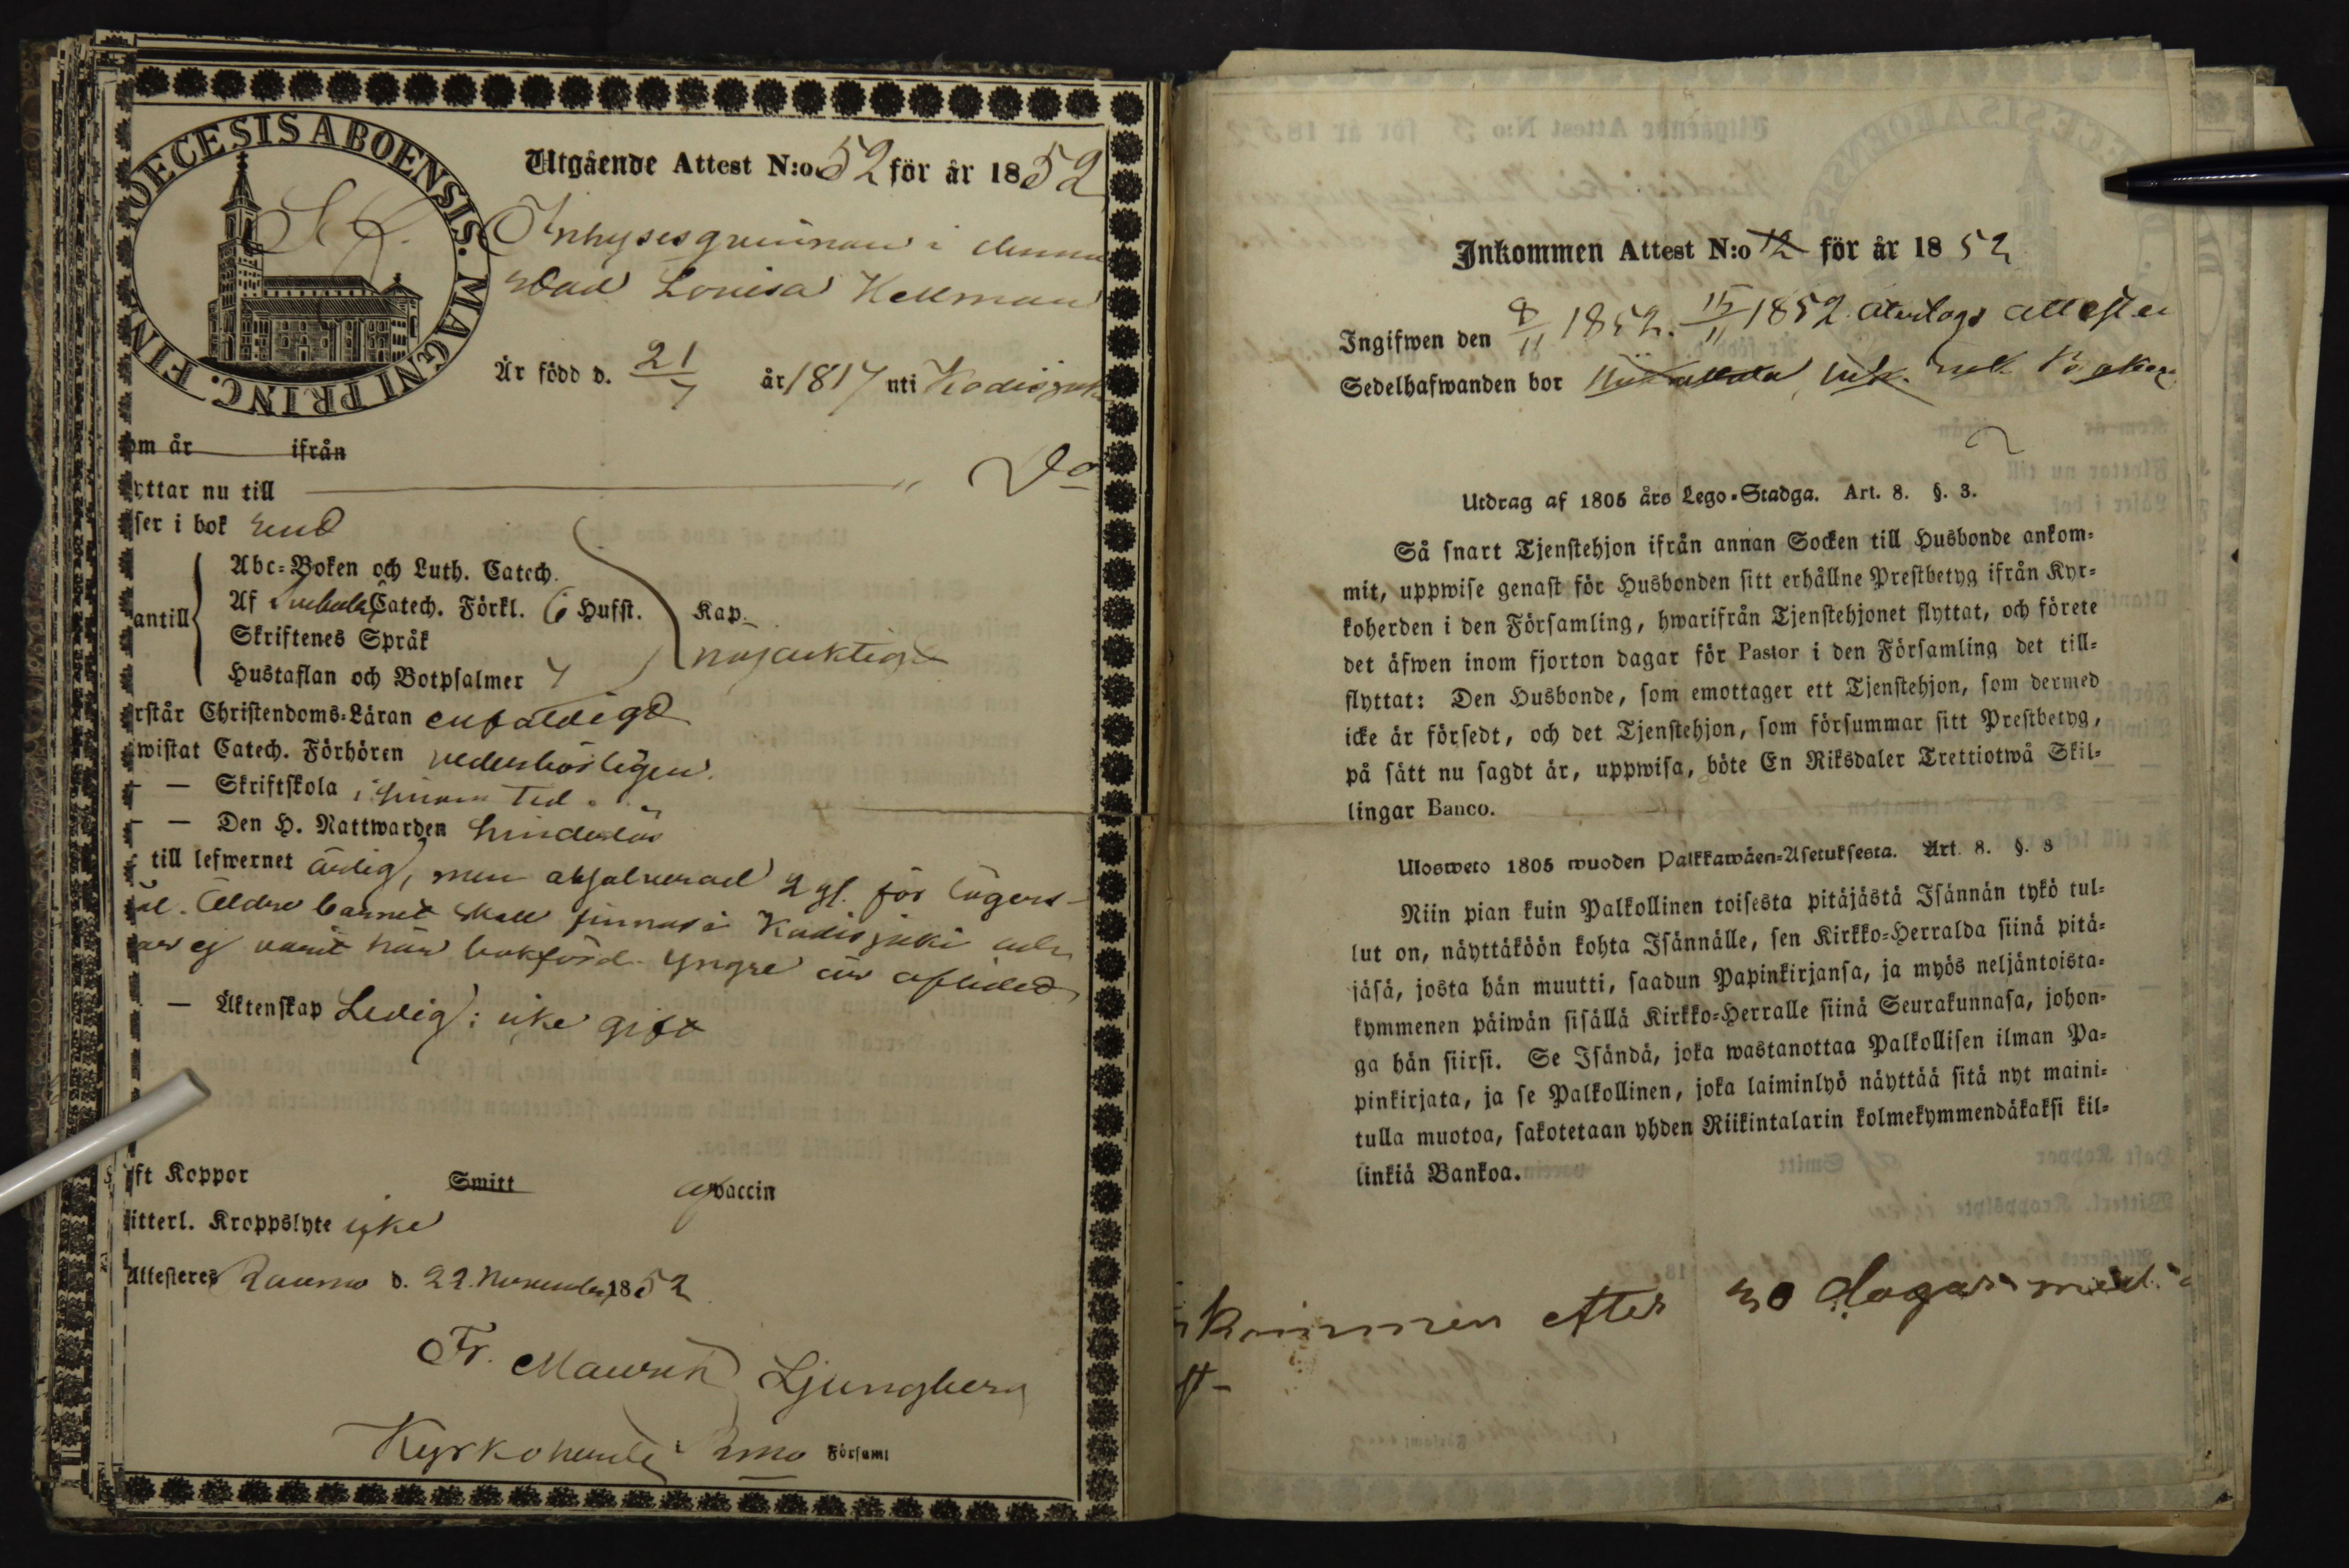 DIOECESIS ABOENSIS. MAGNI PRINC. FIN
Utgående Attest N:o 52 för år 1852
Inhysesqvinnan i denna
stad Lovisa Hellman
Är född d. 21/7 år 1817 uti Kodisjoki
om år ifrån
yttar nu till Do
ser i bok rend
antill
Abc-Boken och Luth. Catech.
Af Svebelii Catech. Förkl. 6 Hufst. Kap.
Skriftenes Språk
nöjaktigt
Hustaflan och Botpsalmer 7
rstår Christendoms-Läran enfaldigt
wistat Catech. Förhören vederbörligen.
— Skriftskola i sinom tid
— Den H. Nattwarden hinderlös
till lefwernet ärlig, men absolverad 2 gg. för lägers-
mål. Äldre barnet skall finnas i Kodisjoki och
har ej varit här bokförd. Yngre är aflidet
— Äktenskap Ledig; icke gift
ft Koppor Smitt af vaccin
itterl. Kroppslyte icke
Attesteres Raumo d. 22. November 1852
Fr. Maurit Ljungberg
Kyrkoherde i Rmo Församl
Inkommen Attest N:o 12 för år 1852
Ingifwen den 8/11 1852. 15/11 1852 återtogs attesten
Sedelhafwanden bor
Utdrag af 1805 års Lego-Stadga. Art. 8. §. 3.
Så snart Tjenstehjon ifrån annan Socken till Husbonde ankom-
mit, uppwise genast för Husbonden sitt erhållne Prestbetyg ifrån Kyr-
koherden i den Församling, hwarifrån Tjenstehjonet flyttat, och förete
det äfwen inom fjorton dagar för Pastor i den Församling det till-
flyttat: Den Husbonde, som emottager ett Tjenstehjon, som dermed
icke är försedt, och det Tjenstehjon, som försummar sitt Prestbetyg,
på sätt nu sagdt är, uppwisa, böte En Riksdaler Trettiotwå Skil-
lingar Banco.
Ulosweto 1805 wuoden Palkkawäen-Asetuksesta. Art. 8. §. 3
Niin pian kuin Palkollinen toisesta pitäjästä Isännän tykö tul-
lut on, näyttäköön kohta Isännälle, sen Kirkko-Herralda siinä pitä-
jäsä, josta hän muutti, saadun Papinkirjansa, ja myös neljäntoista-
kymmenen päiwän sisällä Kirkko-Herralle siinä Seurakunnasa, johon-
ga hän siirsi. Se Isändä, joka wastanottaa Palkollisen ilman Pa-
pinkirjata, ja se Palkollinen, joka laiminlyö näyttää sitä nyt maini-
tulla muotoa, sakotetaan yhden Riikintalarin kolmekymmendäkaksi kil-
linkiä Bankoa.
kommen efter 30 dagars